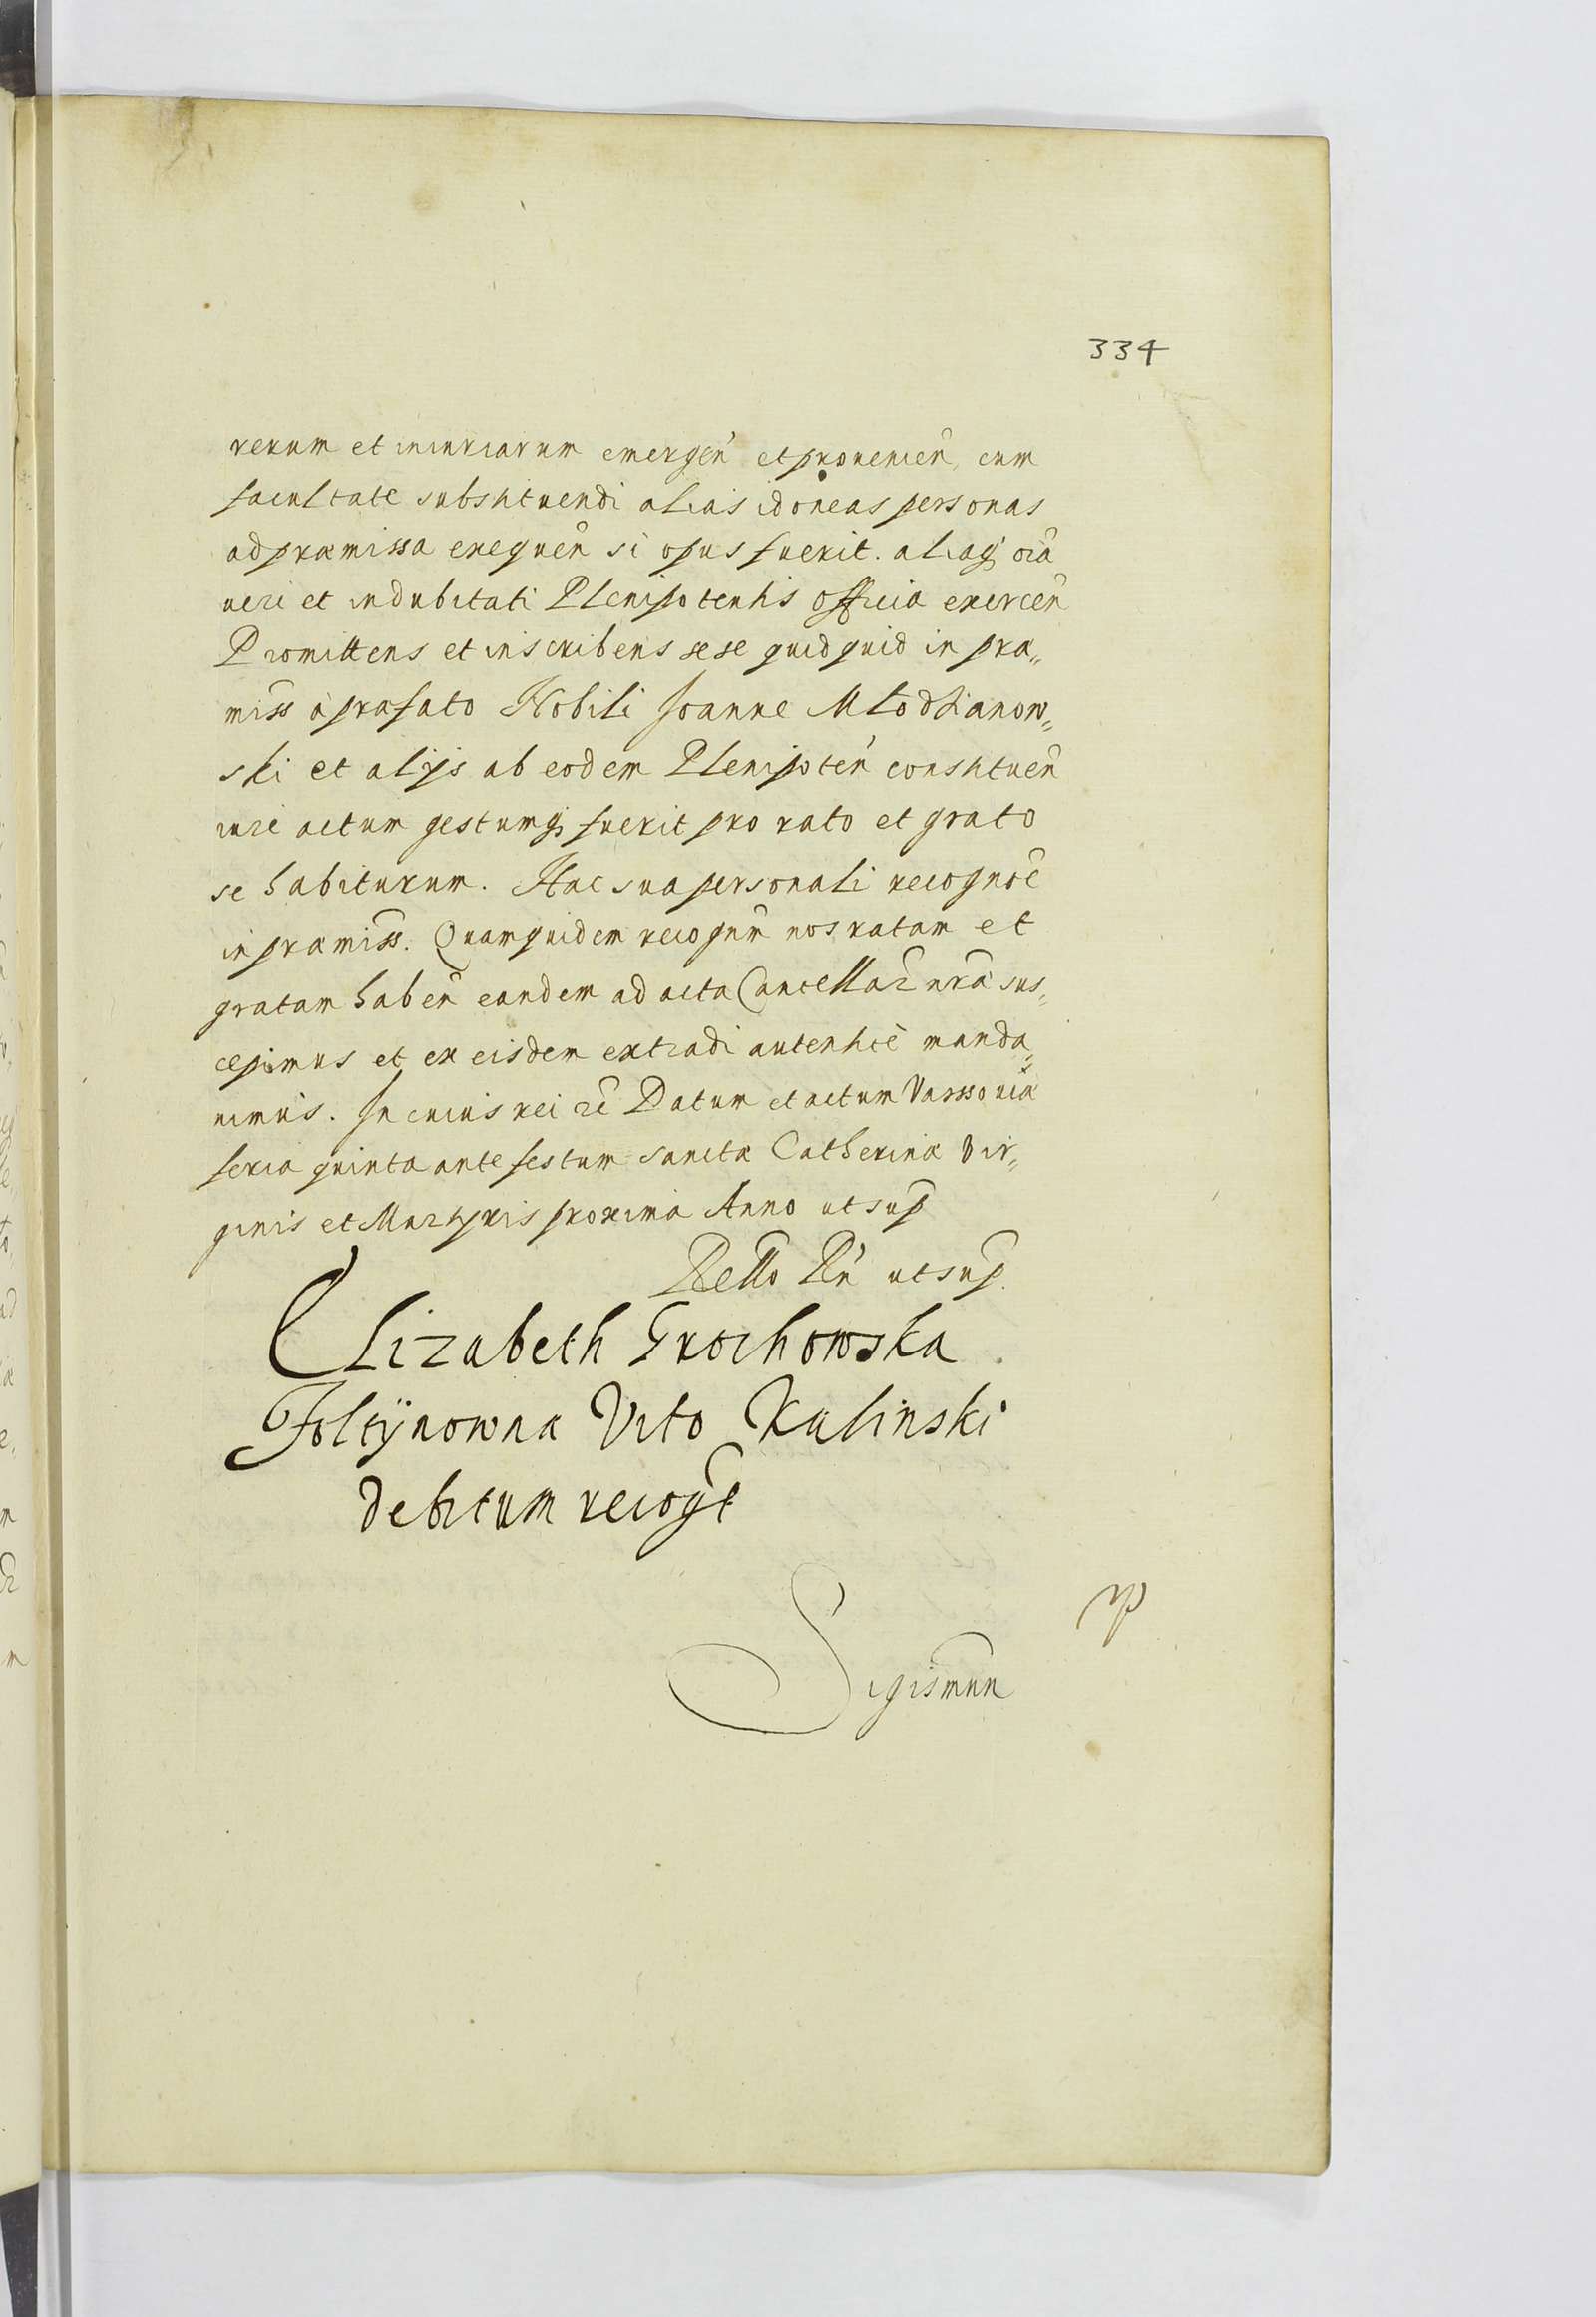 334
rerum et iniuriarum emergen̄ et prouenien̄, cum
facultate substituendi alias idoneas personas
ad præmissa exequen̄ si opus fuerit. aliaq; oīa
ueri et indubitati Plenipotentis officia exercen̄
Promittens et inscribens sese quidquid in præ„
miss̄ à præfato Nobili Joanne Młodzianow„
ski et alijs ab eodem Plenipoten̄ constituen̄
iure actum gestumq; fuerit pro rato et grato
se habiturum. Hac sua personali recognōē
in præmiss̄. Quamquidem recognn̄m nos ratam et
gratam haben̄ eandem ad acta Cancellar̄ nr̄a sus„
cepimus et ex eisdem extradi autenticē manda„
uimus. In cuius rei rē Datum et actum Varssouiæ
feria quinta ante festum sanctæ Catherinæ Vir„
ginis et Martyris proxima Anno ut sup̄
Rello Rn̄ ut sup̄.
Elizabeth Grochowska
Foltÿnowna Vito Kalinski
debitum recoḡt
Sigismun̄